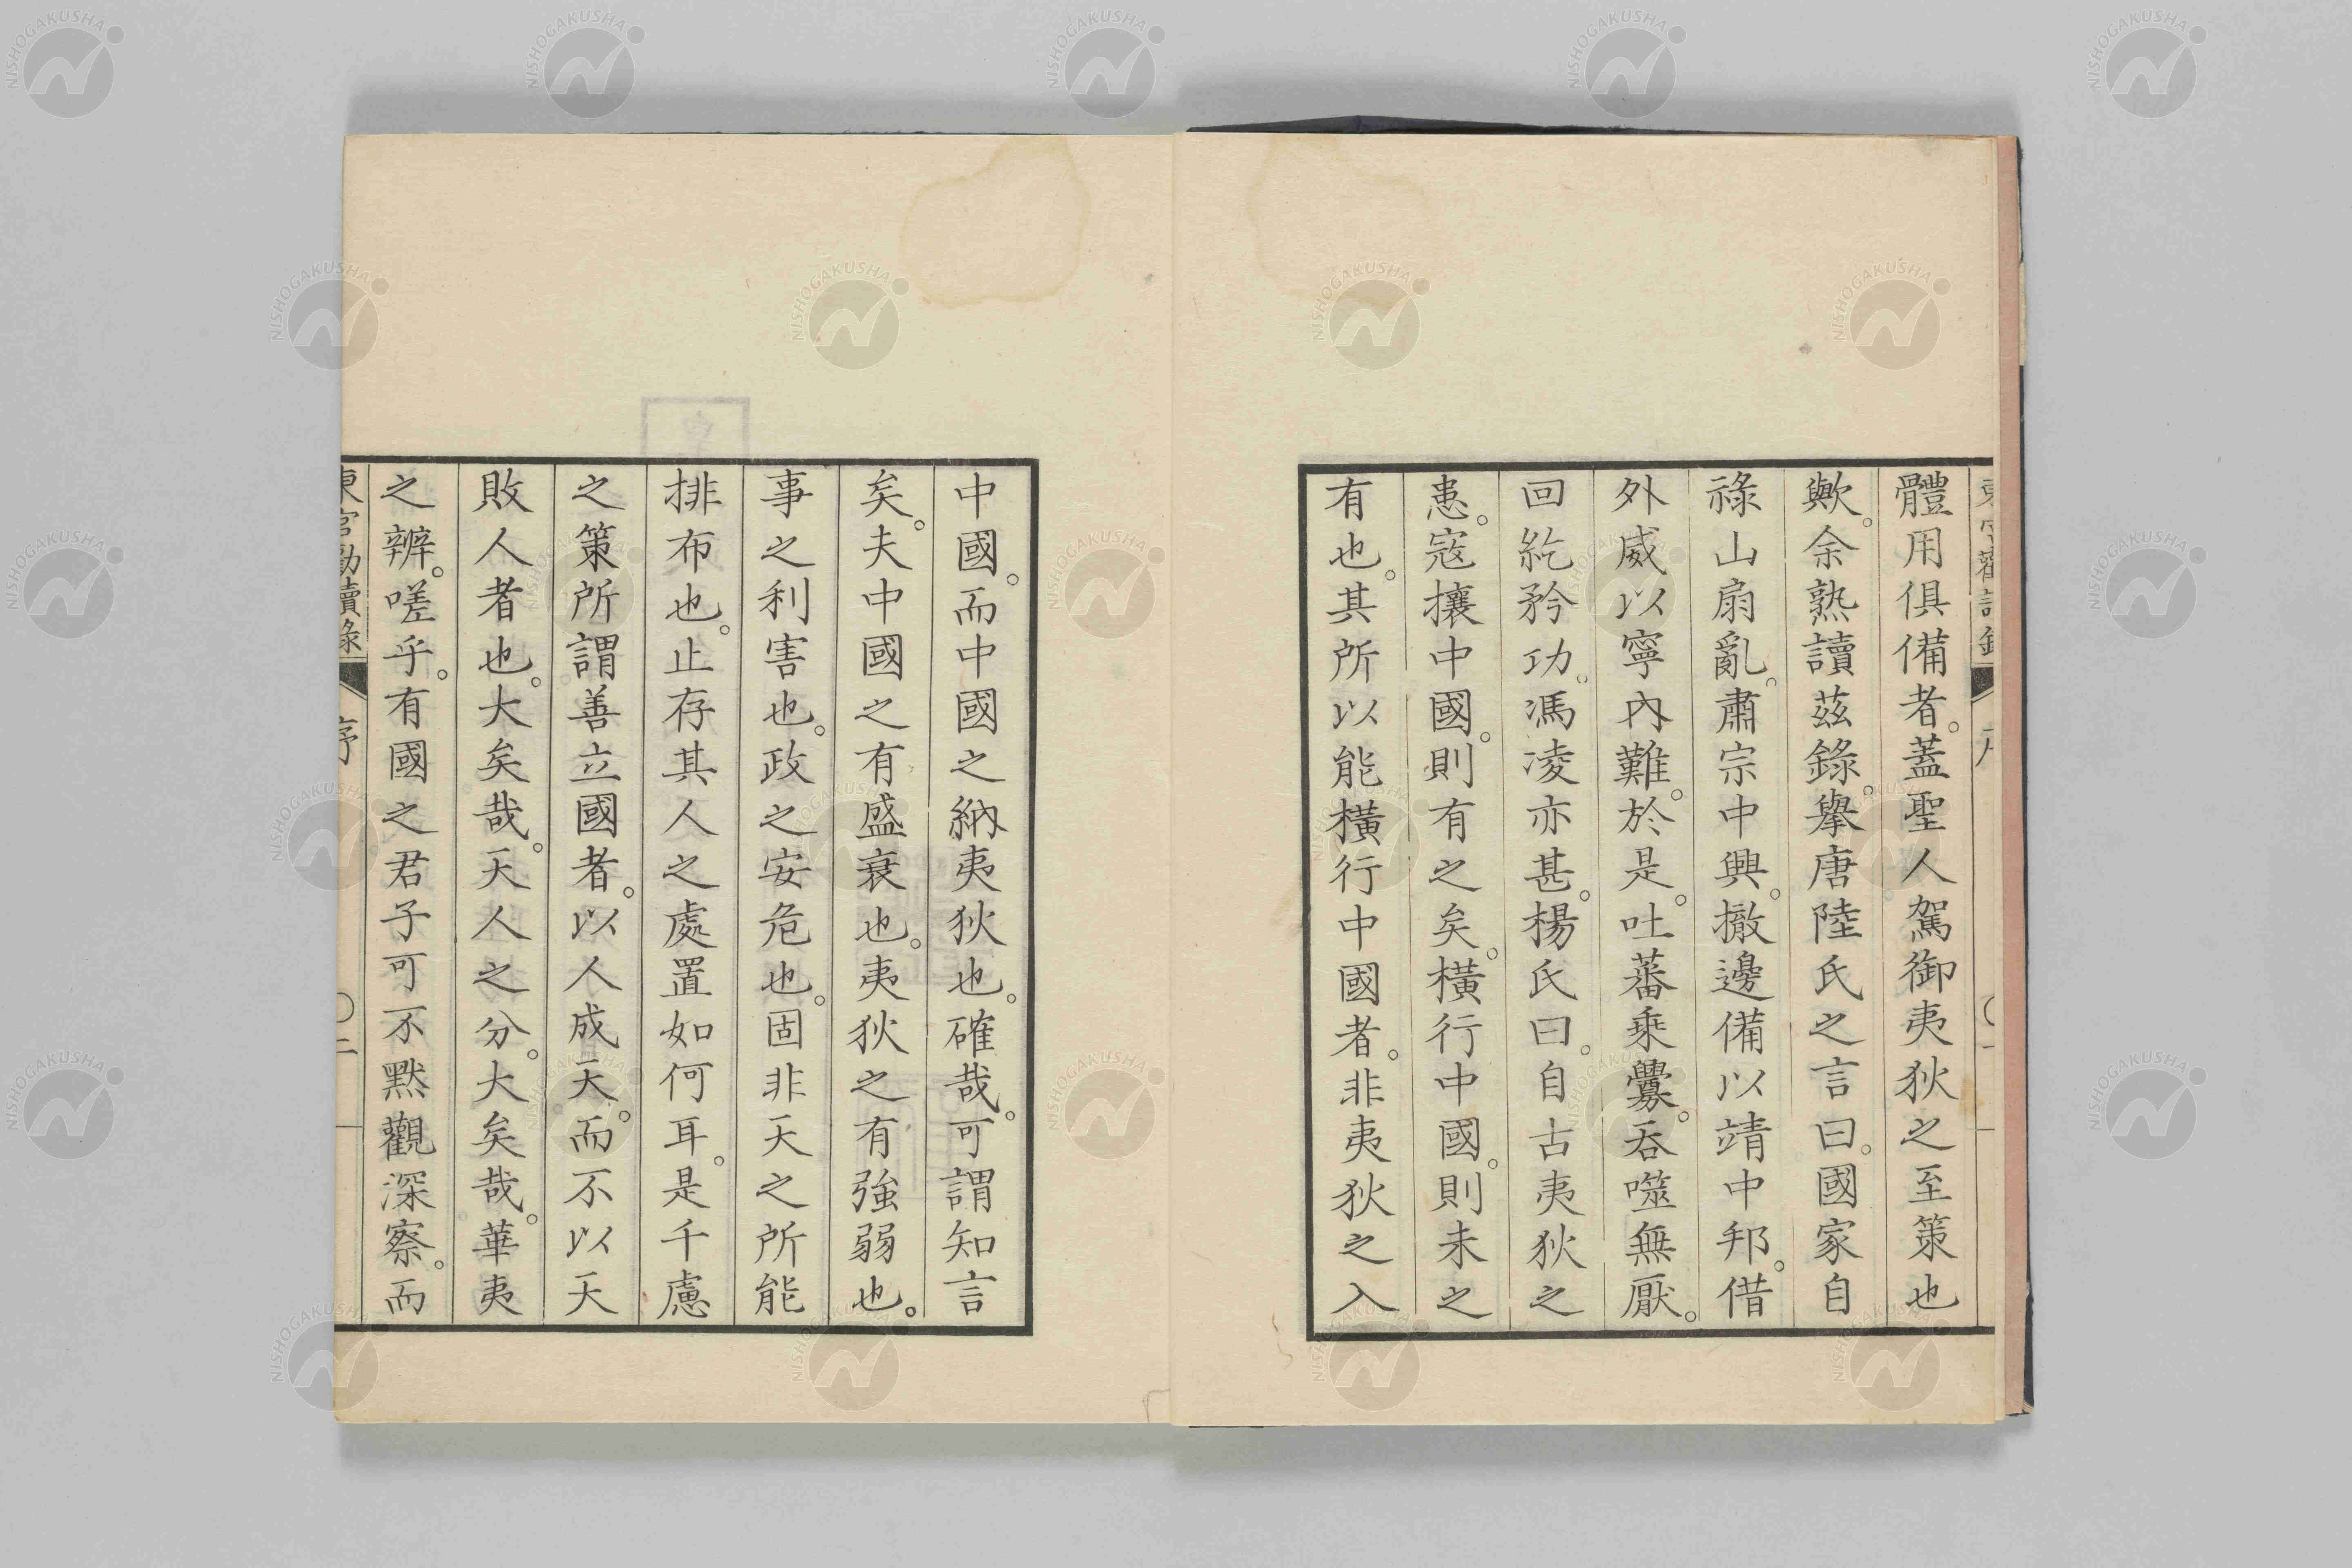 體用俱備者。蓋聖人駕御夷狄之至策也
歟。余熟讀茲錄。舉唐陸氏之言曰。國家自
祿山扇亂。肅宗中興。撤邊備以靖中邦。借
外威以寧內難。於是。吐蕃乘釁。吞噬無厭。
回紇矜功。馮凌亦甚。楊氏曰。自古夷狄之
患。寇攘中國。則有之矣。橫行中國。則未之
有也。其所以能橫行中國者。非夷狄之入
中國。而中國之納夷狄也。確哉。可謂知言
矣。夫中國之有盛衰也。夷狄之有強弱也。
事之利害也。政之安危也。固非天之所能
排布也。止存其人之處置如何耳。是千慮
之策所謂善立國者。以人成天。而不以天
敗人者也。大矣哉。天人之分。大矣哉。華夷
之辨。嗟乎。有國之君子可不黙觀深察。而
東宮勸讀錄 序 〇二
NISHOGAKUSHA